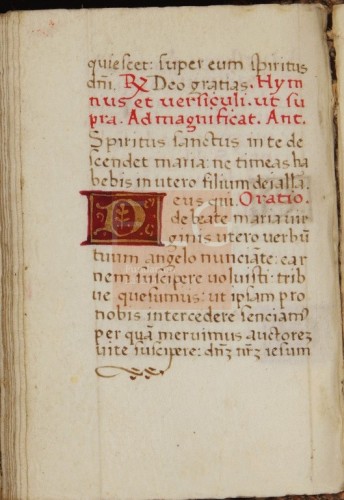 quiescet: super eum spiritus
dñi. ℟ Deo gratias. Hym
nus et versiculi. ut su
pra. Ad magnificat. Ant.
Spiritus sanctus in te de
scendet maria: ne timeas ha
bebis in utero filium dei alla.
Deus qui. Oratio.
de beate marie vir
ginis utero verbũ
tuum angelo nunciãte: car
nem suscipere voluisti: trib
ue quesumus: ut ipsam pro
nobis intercedere senciam9
per quã meruimus auctorez
vite suscipere: dñz nrz iesum